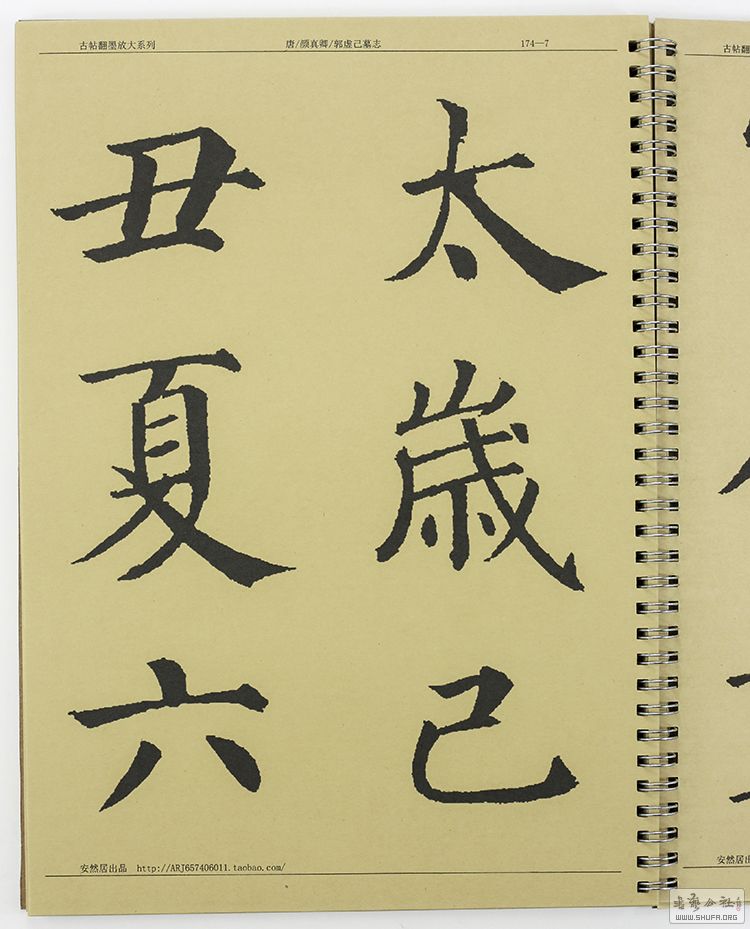 古帖翻墨放大系列 唐/颜真卿/郭虚己墓志 174—7
太歲己
丑夏六
安然居出品 http://ARJ657406011.taobao.com/
古帖翻
安然居出
WWW.SHUFA.ORG